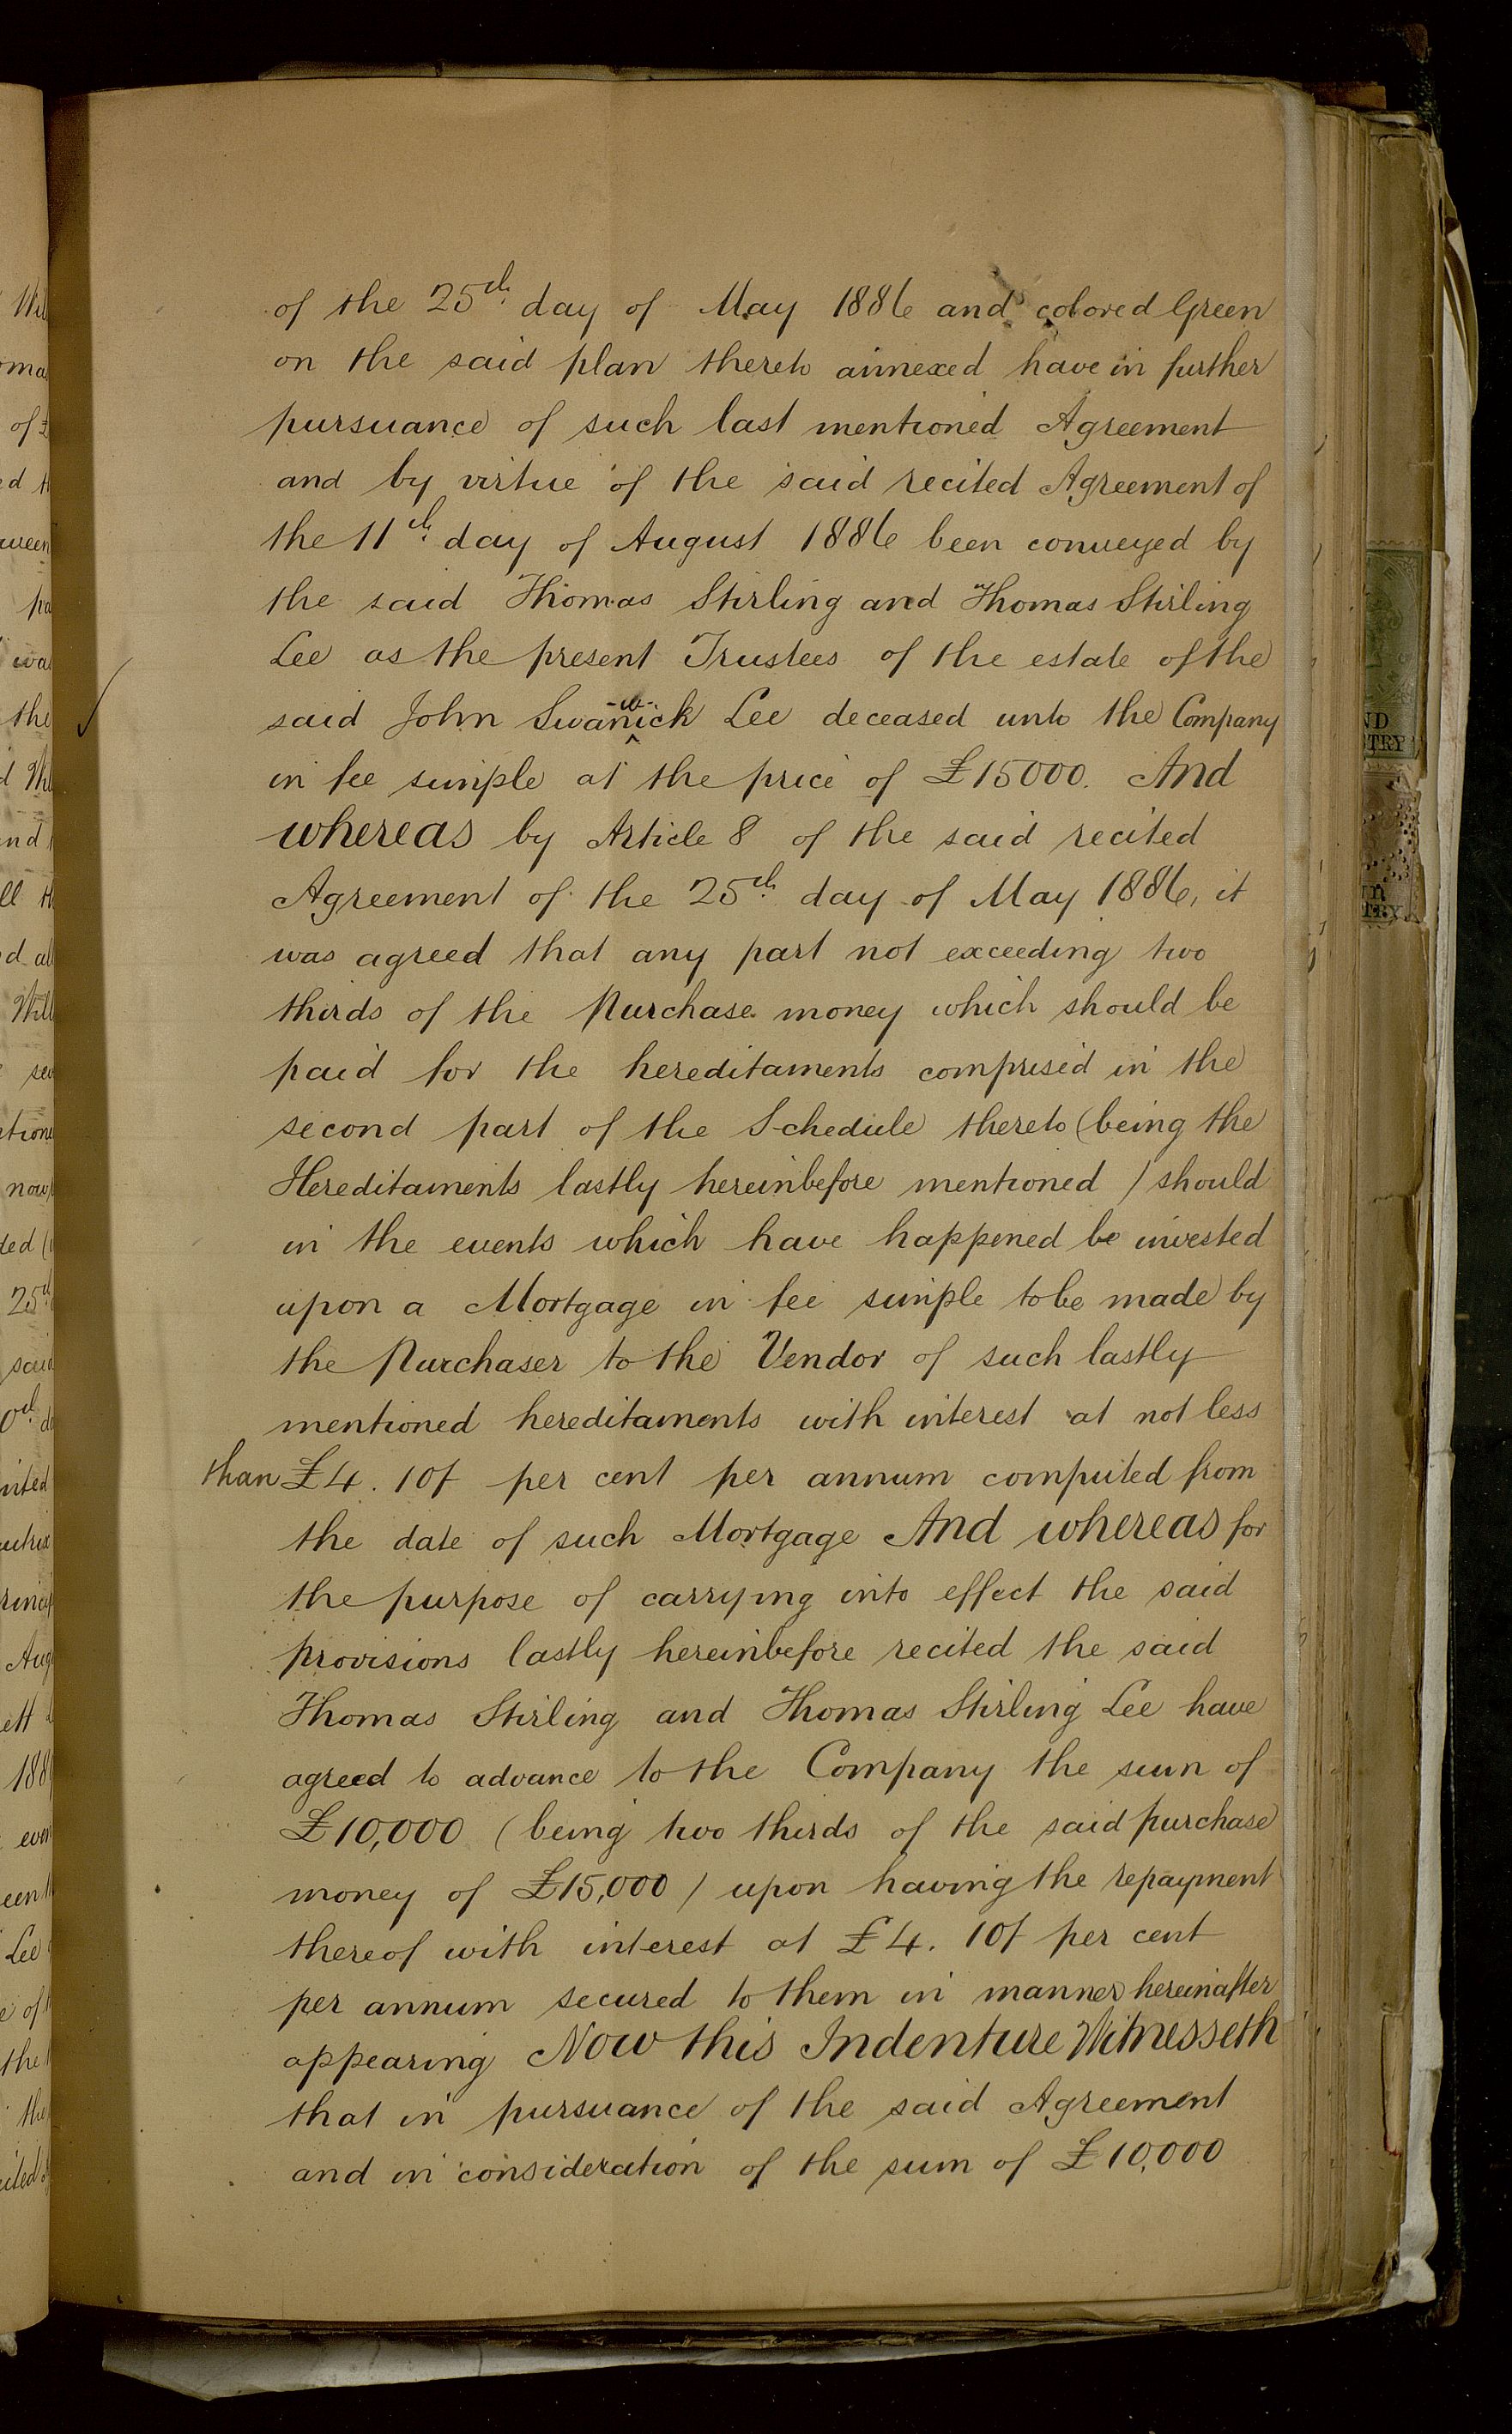 of the 25th day of May 1886 and colored Green
on the said plan thereto annexed have in further
pursuance of such last mentioned Agreement
and by virtue of the said recited Agreement of
the 11th day of August 1886 been conveyed by
the said Thomas Stirling and Thomas Stirling
Lee as the present Trustees of the estate of the
said John Swanwick Lee deceased unto the Company
in fee simple at the price of £15000. And
whereas by Article 8 of the said recited
Agreement of the 25th day of May 1886, it
was agreed that any part not exceeding two
thirds of the Purchase money which should be
paid for the hereditaments comprised in the
second part of the Schedule thereto (being the
Hereditaments lastly hereinbefore mentioned) should
in the events which have happened be invested
upon a Mortgage in fee simple to be made by
the Purchaser to the Vendor of such lastly
mentioned hereditaments with interest at not less
than £4. 10/ per cent per annum computed from
the date of such Mortgage And whereas for
the purpose of carrying into effect the said
provisions lastly hereinbefore recited the said
Thomas Stirling and Thomas Stirling Lee have
agreed to advance to the Company the sum of
£10,000 (being two thirds of the said purchase
money of £15,000) upon having the repayment
thereof with interest at £4. 10/ per cent
per annum secured to them in manner hereinafter
appearing Now this Indenture Witnesseth
that in pursuance of the said Agreement
and in consideration of the sum of £10,000